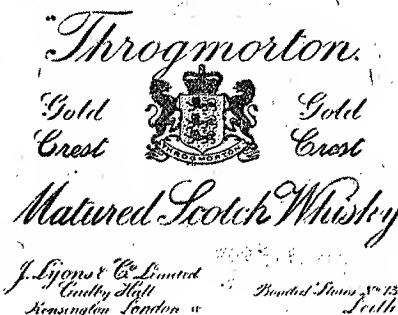 "Throgmorton.
Gold Crest
Gold Crest
THROGMORTON
Matured Scotch Whisky
J. Lyons & Co. Limited
Cadby Hall
Kensington London W
Bonded Stores No. 13
Leith